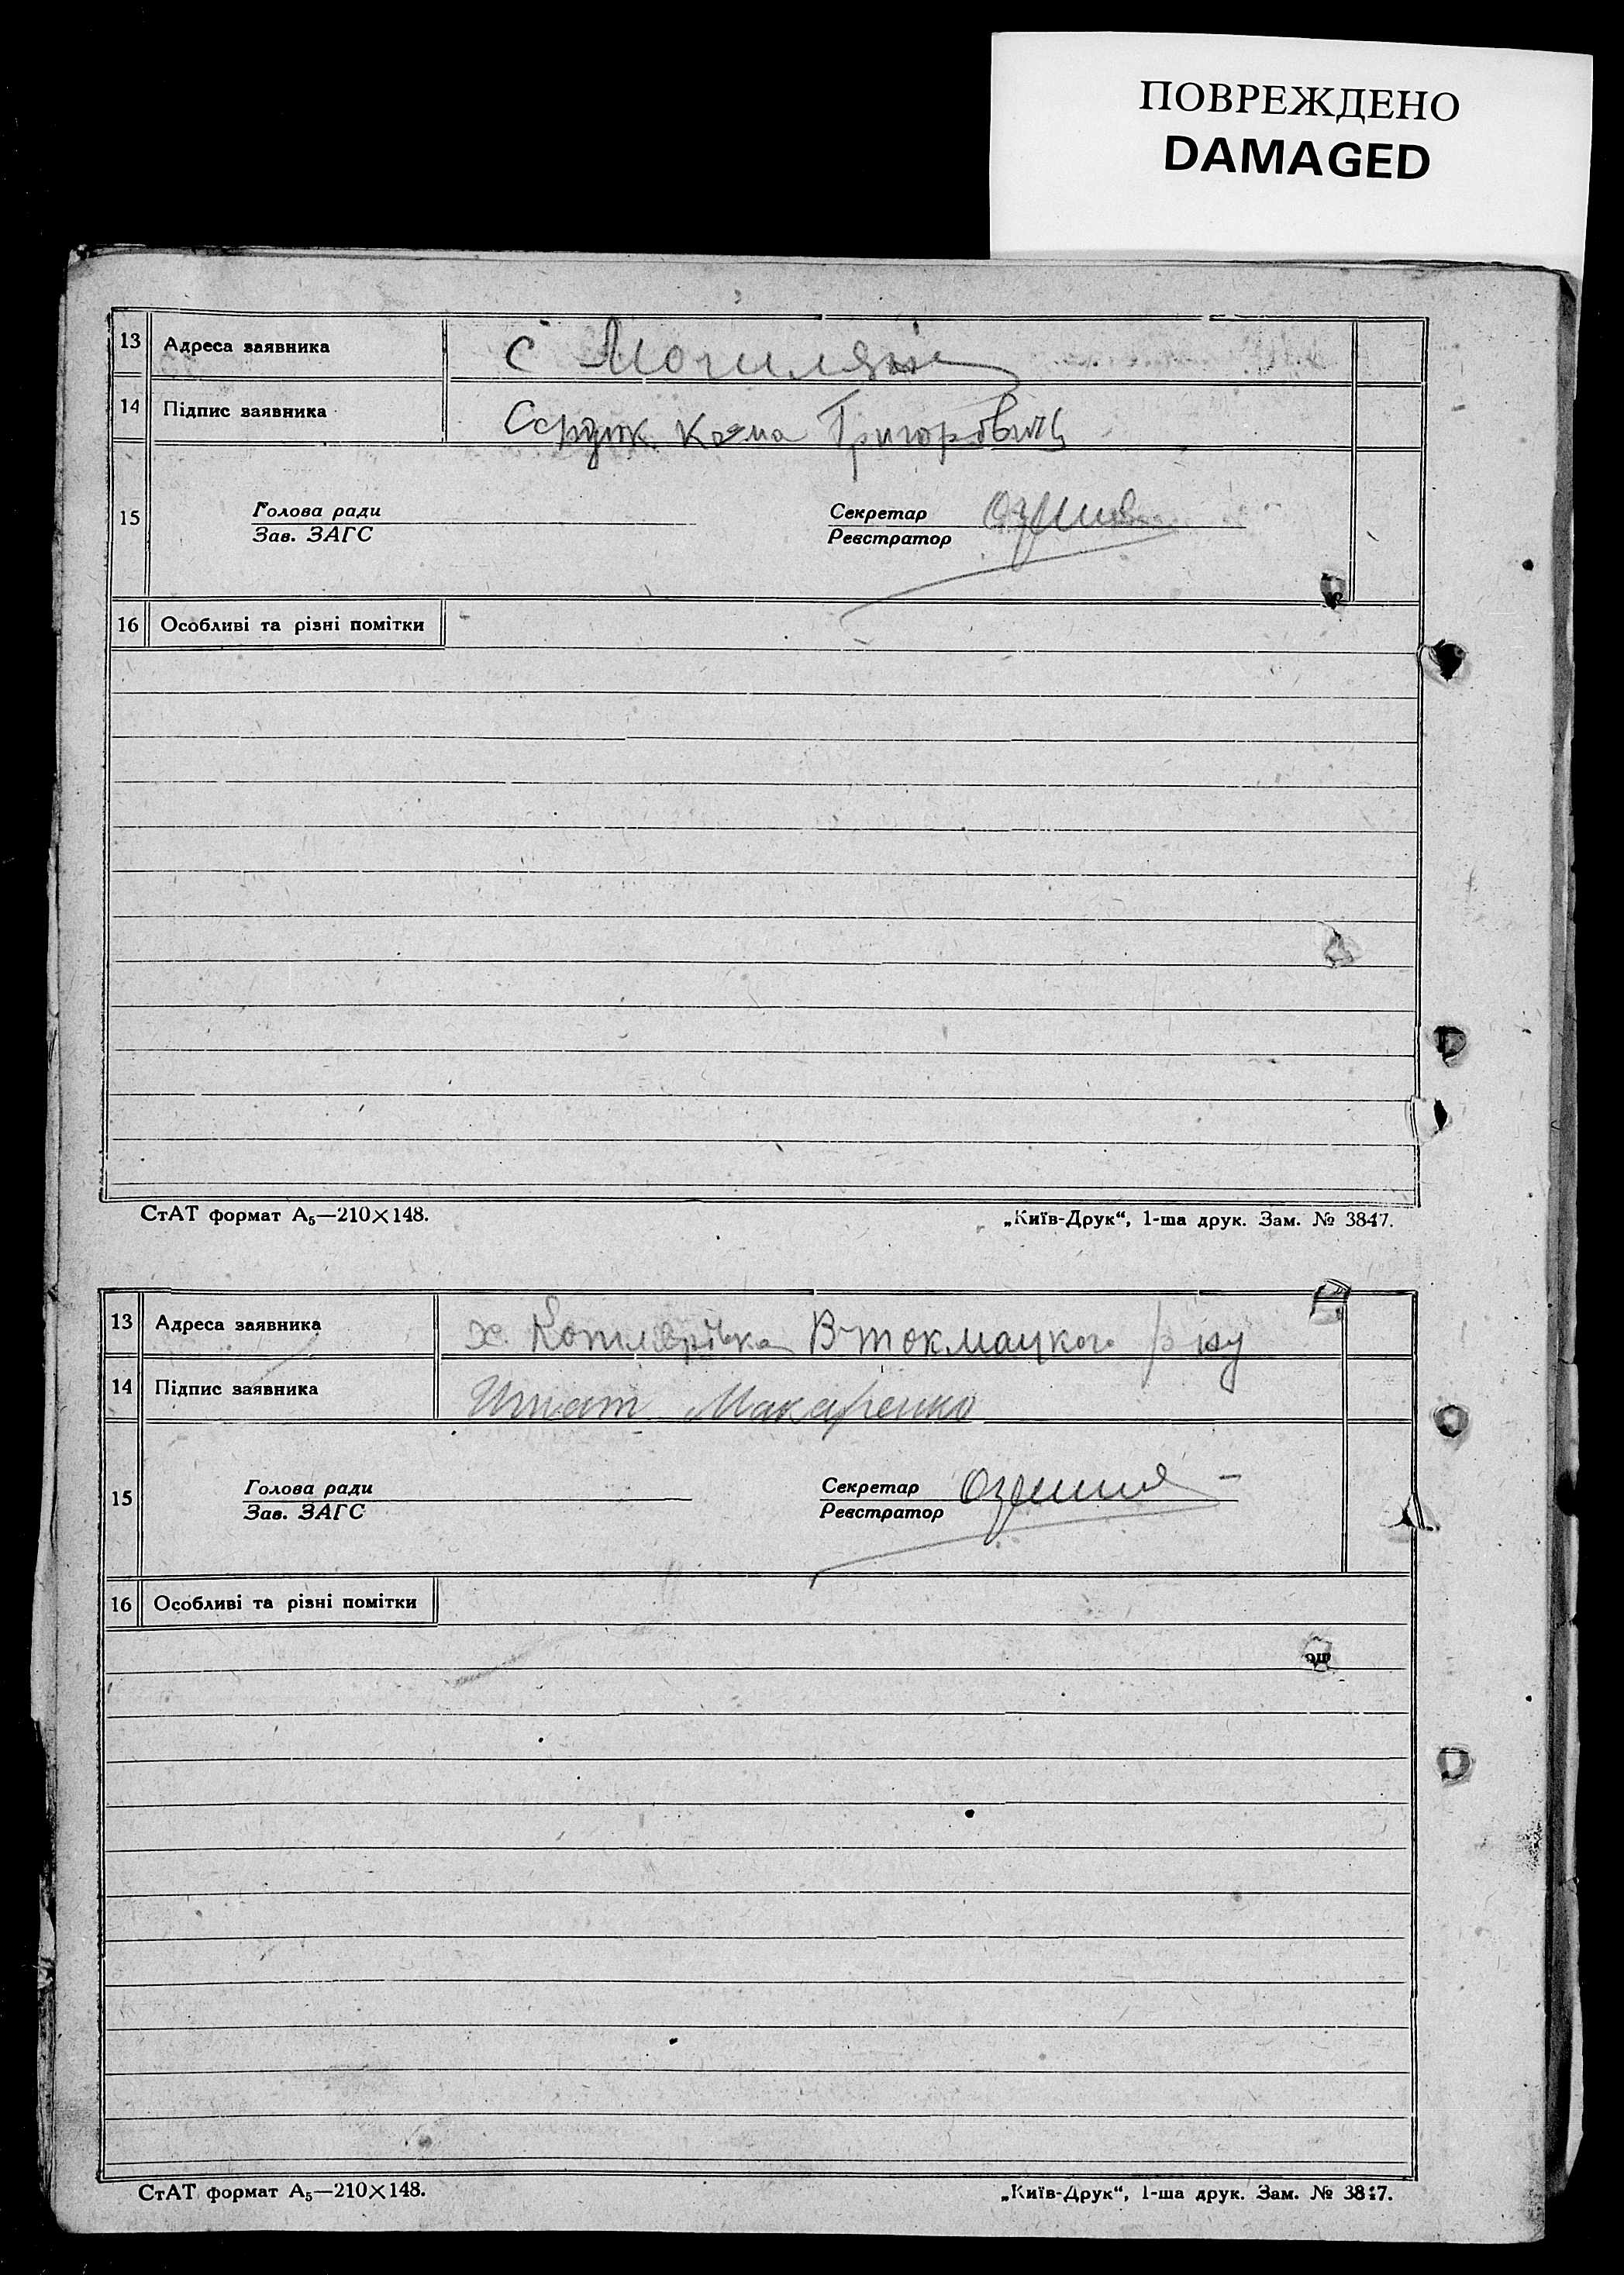 ПОВРЕЖДЕНО
DAMAGED
13 Адреса заявника с Могиляни
14 Підпис заявника Сердюк Козма Григоровичъ
15 Голова ради
Зав. ЗАГС
Секретар
Реєстратор
16 Особливі та різні помітки
СтАТ формат А₅—210×148.
„Київ-Друк“, 1-ша друк. Зам. № 3847.
13 Адреса заявника х. Котлярівка В-токмацкого р-ну
14 Підпис заявника Игнат Макаренко
15 Голова ради
Зав. ЗАГС
Секретар
Реєстратор
16 Особливі та різні помітки
СтАТ формат А₅—210×148.
„Київ-Друк“, 1-ша друк. Зам. № 3847.